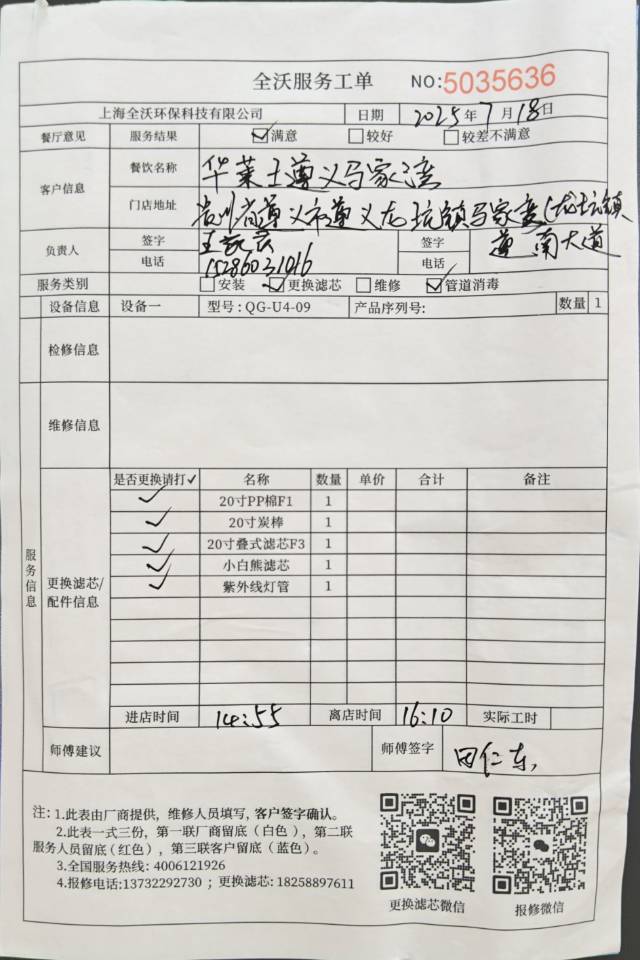 全沃服务工单 NO:5035636
上海全沃环保科技有限公司 日期 2025年7月18日
餐厅意见 服务结果 ☑满意 □较好 □较差不满意
客户信息 餐饮名称 华莱士遵义马家湾
门店地址 贵州省遵义市遵义龙坑镇马家湾(龙坑镇
遵南大道
负责人 签字 王 签字
电话 15286031016 电话
服务类别 □安装 ☑更换滤芯 □维修 ☑管道消毒
设备信息 设备一 型号:QG-U4-09 产品序列号: 数量 1
检修信息
维修信息
服务信息
更换滤芯/配件信息
是否更换请打✓ 名称 数量 单价 合计 备注
✓ 20寸PP棉F1 1
✓ 20寸炭棒 1
✓ 20寸叠式滤芯F3 1
✓ 小白熊滤芯 1
✓ 紫外线灯管 1
进店时间 14:55 离店时间 16:10 实际工时
师傅建议 师傅签字 田仁东
注:1.此表由厂商提供，维修人员填写,客户签字确认。
2.此表一式三份，第一联厂商留底(白色)，第二联
服务人员留底(红色)，第三联客户留底(蓝色)。
3.全国服务热线: 4006121926
4.报修电话:13732292730 ；更换滤芯: 18258897611
更换滤芯微信 报修微信